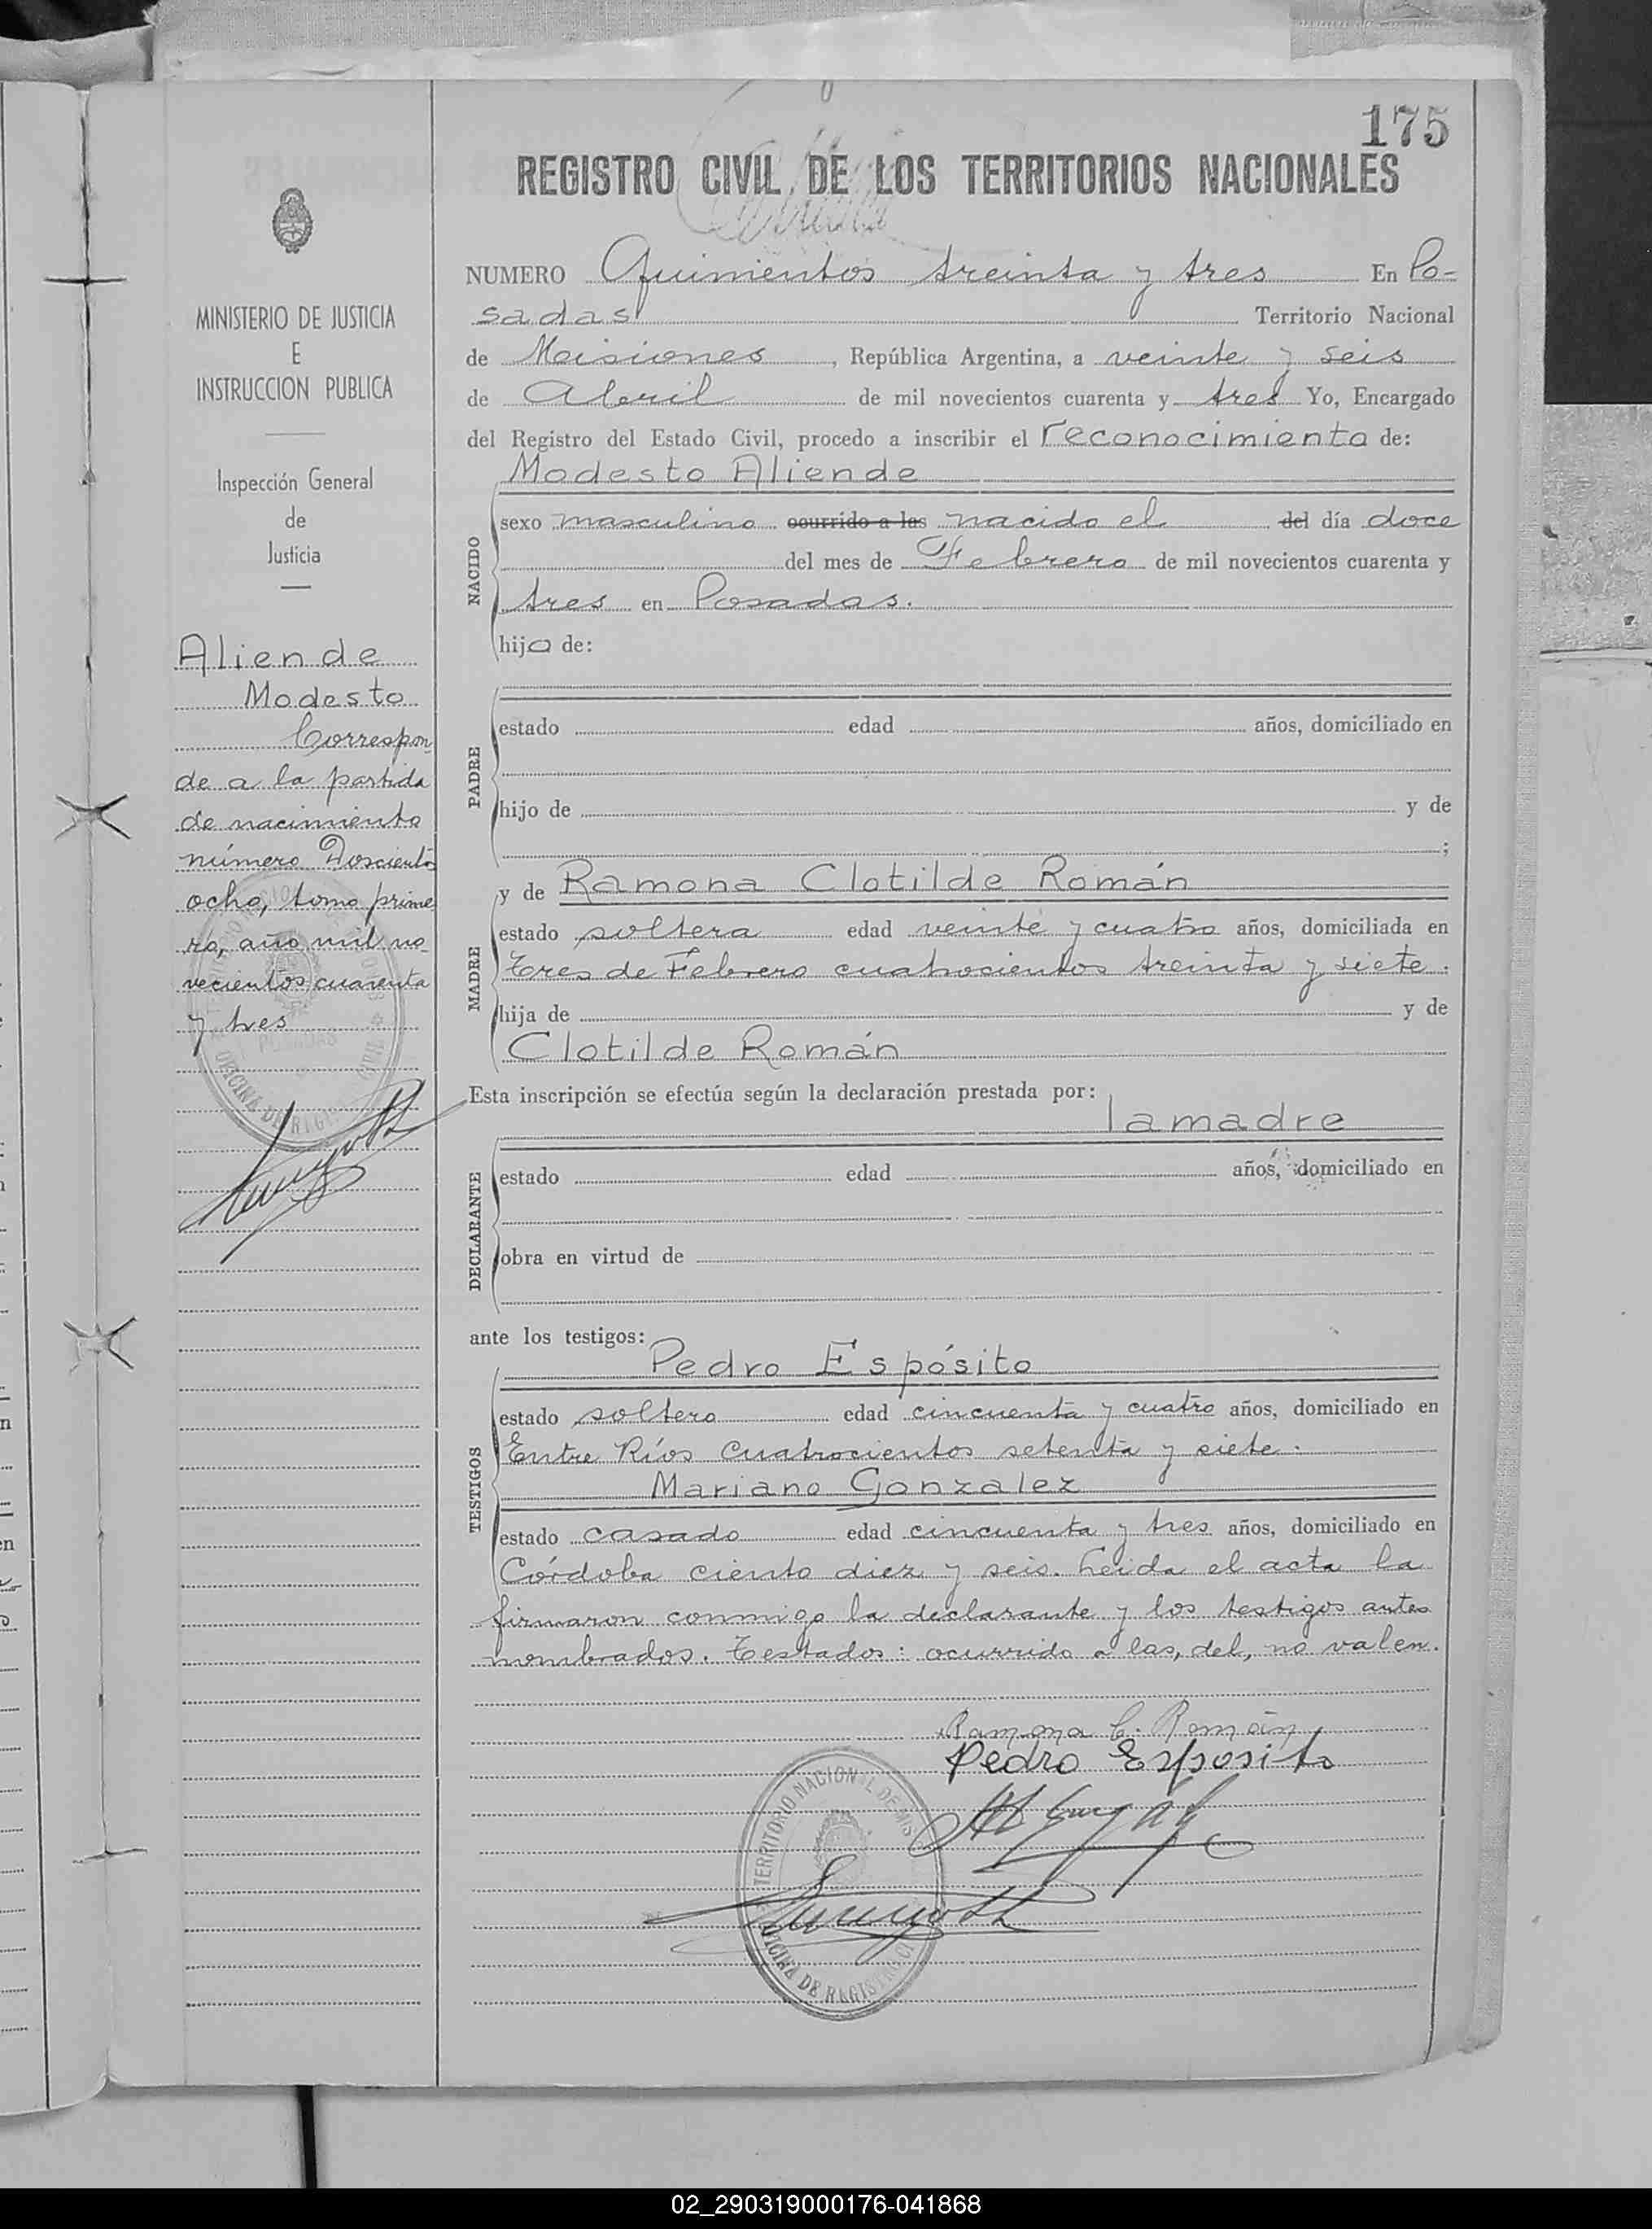 175
REGISTRO CIVIL DE LOS TERRITORIOS NACIONALES
MINISTERIO DE JUSTICIA
E
INSTRUCCION PUBLICA
Inspección General
de
Justicia
Aliende
Modesto
Correspon
de a la partida
de nacimiento
número Doscientos
ocho, tomo prime
ro, año mil no
vecientos cuarenta
y tres
NUMERO Quinientos treinta y tres En Po-
sadas Territorio Nacional
de Misiones, República Argentina, a veinte y seis
de Abril de mil novecientos cuarenta y tres Yo, Encargado
del Registro del Estado Civil, procedo a inscribir el reconocimiento de:
Modesto Aliende
NACIDO
sexo masculino ocurrido a las nacido el del día doce
del mes de Febrero de mil novecientos cuarenta y
tres en Posadas.
hijo de:
PADRE
estado edad años, domiciliado en
hijo de y de
;
y de Ramona Clotilde Román
MADRE
estado soltera edad veinte y cuatro años, domiciliada en
Tres de Febrero cuatrocientos treinta y siete.
hija de y de
Clotilde Román
Esta inscripción se efectúa según la declaración prestada por:
la madre
DECLARANTE
estado edad años, domiciliado en
obra en virtud de
ante los testigos:
Pedro Espósito
TESTIGOS
estado soltero edad cincuenta y cuatro años, domiciliado en
Entre Ríos cuatrocientos setenta y siete.
Mariano Gonzalez
estado casado edad cincuenta y tres años, domiciliado en
Córdoba ciento diez y seis. Leida el acta la
firmaron conmigo la declarante y los testigos antes
nombrados. Testados: ocurrido a las, del, no valen.
Ramona C. Román
Pedro Esposito
TERRITORIO NACIONAL DE MIS
OFICINA DE REGISTRO CI
02_290319000176-041868